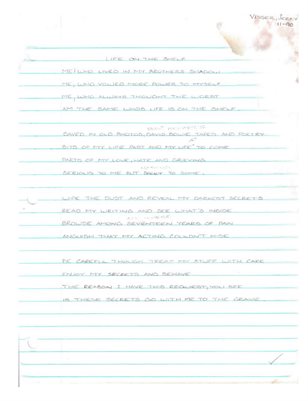 LIFE ON THE SHELF
ME, WHO LIVED IN MY BROTHERS SHADOW
ME, WHO VOWED MORE POWER TO MYSELF
ME, WHO ALWAYS THOUGHT THE
THE SAME WORDS LIFE IS ON THE SHELF
SAVED IN OLD PHOTOS, DAVID BOWIE TAPES AND POETRY
BITS OF MY LIFE PAST AND MY LIFE TO COME
PARTS OF MY LOVE, HATE AND GRIEVING
SERIOUS TO ME BUT TO SOME
WIPE THE DUST AND REVEAL MY DARKEST SECRETS
READ MY WRITING AND SEE WHAT'S INSIDE
BROWSE AMONG SEVENTEEN YEARS OF PAIN
ANGUISH THAT MY ACTING COULDN'T HIDE
BE CAREFUL THOUGH TREAT MY STUFF WITH CARE
ENJOY MY SECRETS AND BEHAVE
THE REASON I HAVE THIS REQUEST, YOU SEE
IS THESE SECRETS GO WITH ME TO THE GRAVE